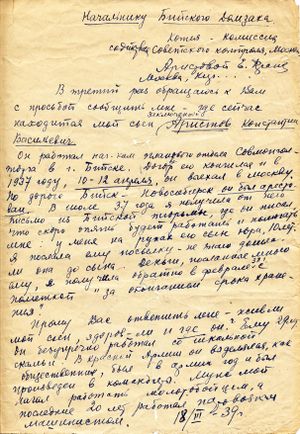 Начальнику Бийского Домзака
Комиссия
Советского контроля, Москва
Аристовой Е.
Москва,
В третий раз обращаюсь к Вам
с просьбой сообщить мне - где сейчас
находится мой сын Аристов Константин
Васильевич.
Он работал нач-ком отдела Совмонгол-
торга в г. Бийске. Договор его кончился и в
1937 году, 10-12 апреля, он выехал в Москву.
По дороге Бийск - Новосибирск он был аресто-
ван. В июле 37 года я получила от него
письмо из Бийской тюрьмы, где он писал
что скоро опять будет работать и поможет
мне: у меня на руках его сын
Я послала ему посылку - не знаю дошла
ли она до сына. Деньги, посланные мною
ему, я получила обратно в феврале
"за окончанием срока хране-
ния".
Прошу Вас ответить мне - жив ли
мой сын, здоров - ли и где он? Ему 29 лет
он безупречно работал со школьной
скамьи. В Красной Армии он
общественник, был в армии год и был
произведен в комвзвода. Муж мой
начал работать молоровойцем, а
последние 20 лет работал паровозным
машинистом.
18/III - 39 г.